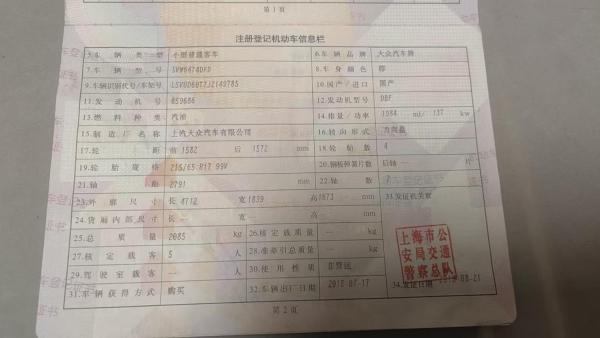 第1页
注册登记机动车信息栏
5.车辆类型 小型普通客车 6.车辆品牌 大众汽车牌
7.车辆型号 SVW6474DFD 8.车身颜色 棕
9.车辆识别代号/车架号 10.国产/进口 国产
11.发动机号 859686 12.发动机型号 DBF
13.燃料种类 汽油 14.排量/功率 1984 ml/ 137 kw
15.制造厂名称 上汽大众汽车有限公司 16.转向形式 方向盘
17.轮距 前 1582 后 1572 mm 18.轮胎数 4
19.轮胎规格 215/65 R17 99V 20.钢板弹簧片数 后轴 — 片
21.轴距 2791 mm 22.轴数 2
23.外廓尺寸 长 4712 宽 1839 高 1673 mm 33.发证机关章
24.货厢内部尺寸 长 — 宽 — 高 — mm
25.总质量 2085 kg 26.核定载质量 — kg
27.核定载客 5 人 28.准牵引总质量 — kg
29.驾驶室载客 — 人 30.使用性质 非营运
31.车辆获得方式 购买 32.车辆出厂日期 2018-07-17 34.发证日期 2018-08-21
上海市公
安局交通
警察总队
第2页